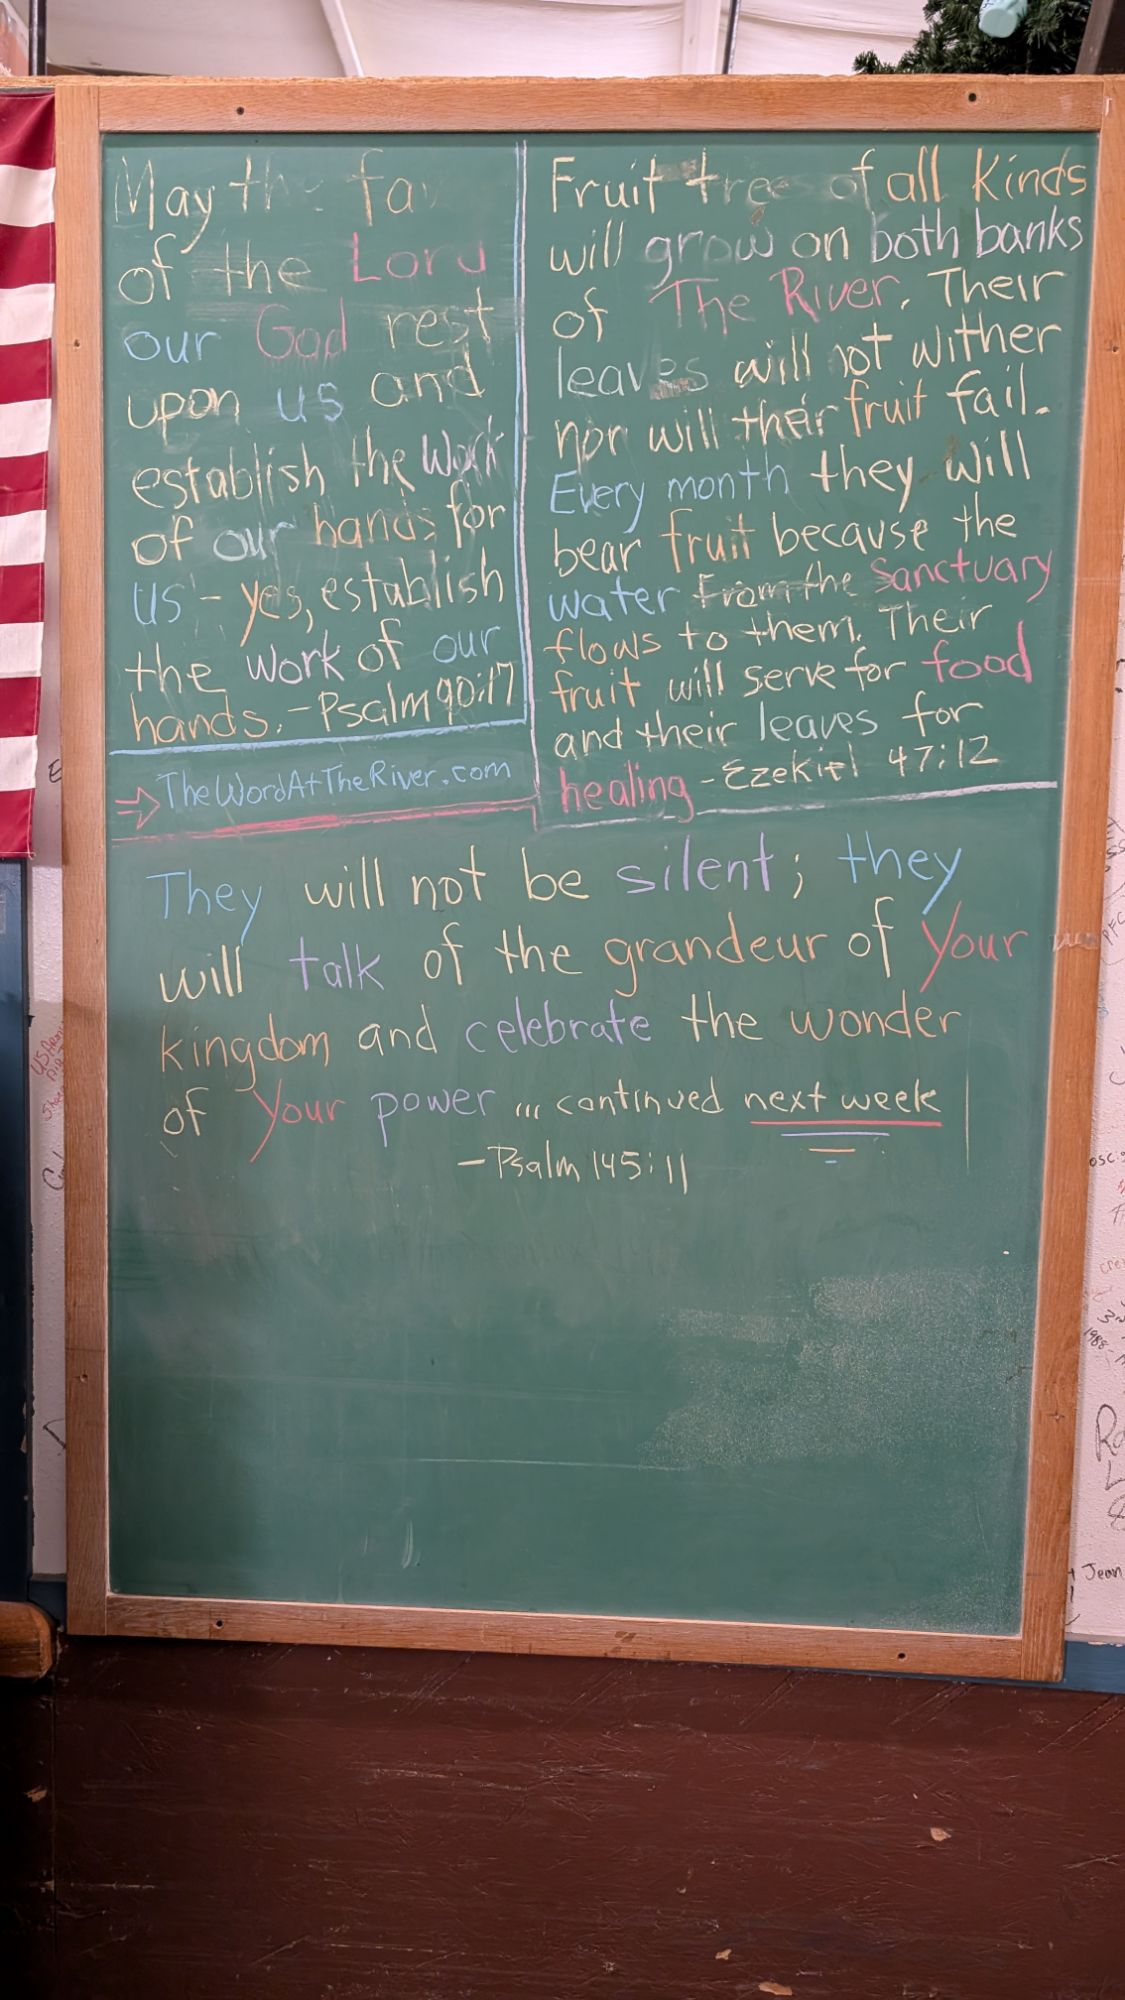 May the fa
of the Lord
our God rest
upon us and
establish the work
of our hands for
us - yes, establish
the work of our
hands. - Psalm 90:17
TheWordAtTheRiver.com
Fruit trees of all Kinds
will grow on both banks
of The River. Their
leaves will not wither
nor will their fruit fail.
Every month they will
bear fruit because the
water from the Sanctuary
flows to them. Their
fruit will serve for food
and their leaves for
healing - Ezekiel 47:12
They will not be silent; they
will talk of the grandeur of Your
kingdom and celebrate the wonder
of Your power ... continued next week
- Psalm 145:11
Jean